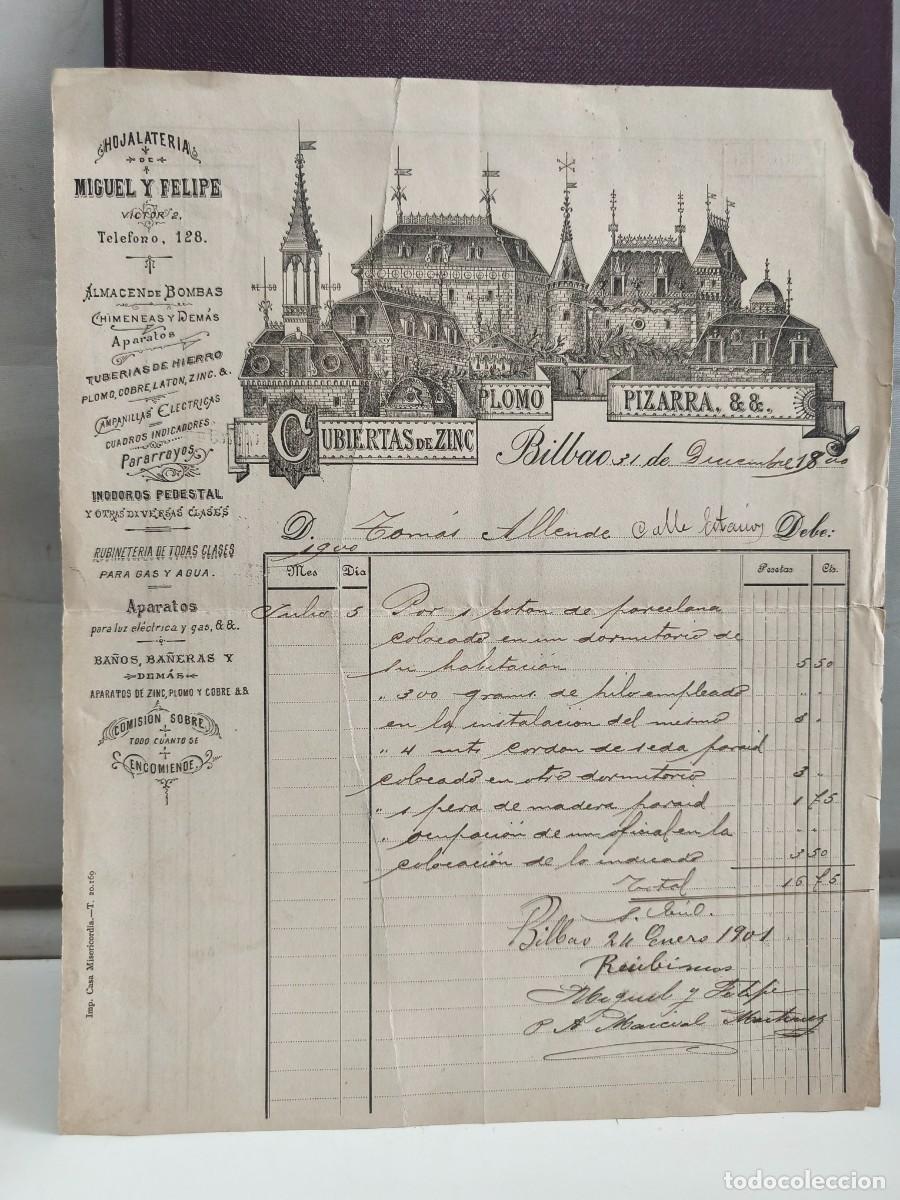 HOJALATERIA
DE
MIGUEL Y FELIPE
VICTOR 2,
Telefono, 128.
ALMACEN DE BOMBAS
CHIMENEAS Y DEMÁS
Aparatos
TUBERIAS DE HIERRO
PLOMO, COBRE, LATON, ZINC. &.
CAMPANILLAS ELECTRICAS
CUADROS INDICADORES
Pararrayos
INODOROS PEDESTAL
Y OTRAS DIVERSAS CLASES
RUBINETERIA DE TODAS CLASES
PARA GAS Y AGUA.
Aparatos
para luz eléctrica y gas, & &.
BAÑOS, BAÑERAS Y
DEMÁS
APARATOS DE ZINC, PLOMO Y COBRE & &.
COMISIÓN SOBRE
TODO CUANTO SE
ENCOMIENDE.
Imp. Casa Misericordia.—T. 20.169
NE SO NE SO
CUBIERTAS DE ZINC PLOMO Y PIZARRA, & &.
Bilbao 31 de Diciembre 18 900
D. Tomás Allende Calle Debe:
1900
Mes Día Pesetas Cts.
Julio 5 Por 1 boton de porcelana
colocado en un dormitorio de
su habitación 5 50
" 300 grams. de hilo empleado
en la instalacion del mismo 3 "
" 4 mts cordon de seda para id
colocado en otro dormitorio 3 "
" 1 pera de madera para id 1 75
" ocupación de un oficial en la
colocación de lo indicado 3 50
Total 16 75
Bilbao 24 Enero 1901
Recibimos
Miguel y Felipe
P A Marcial Martinez
todocoleccion